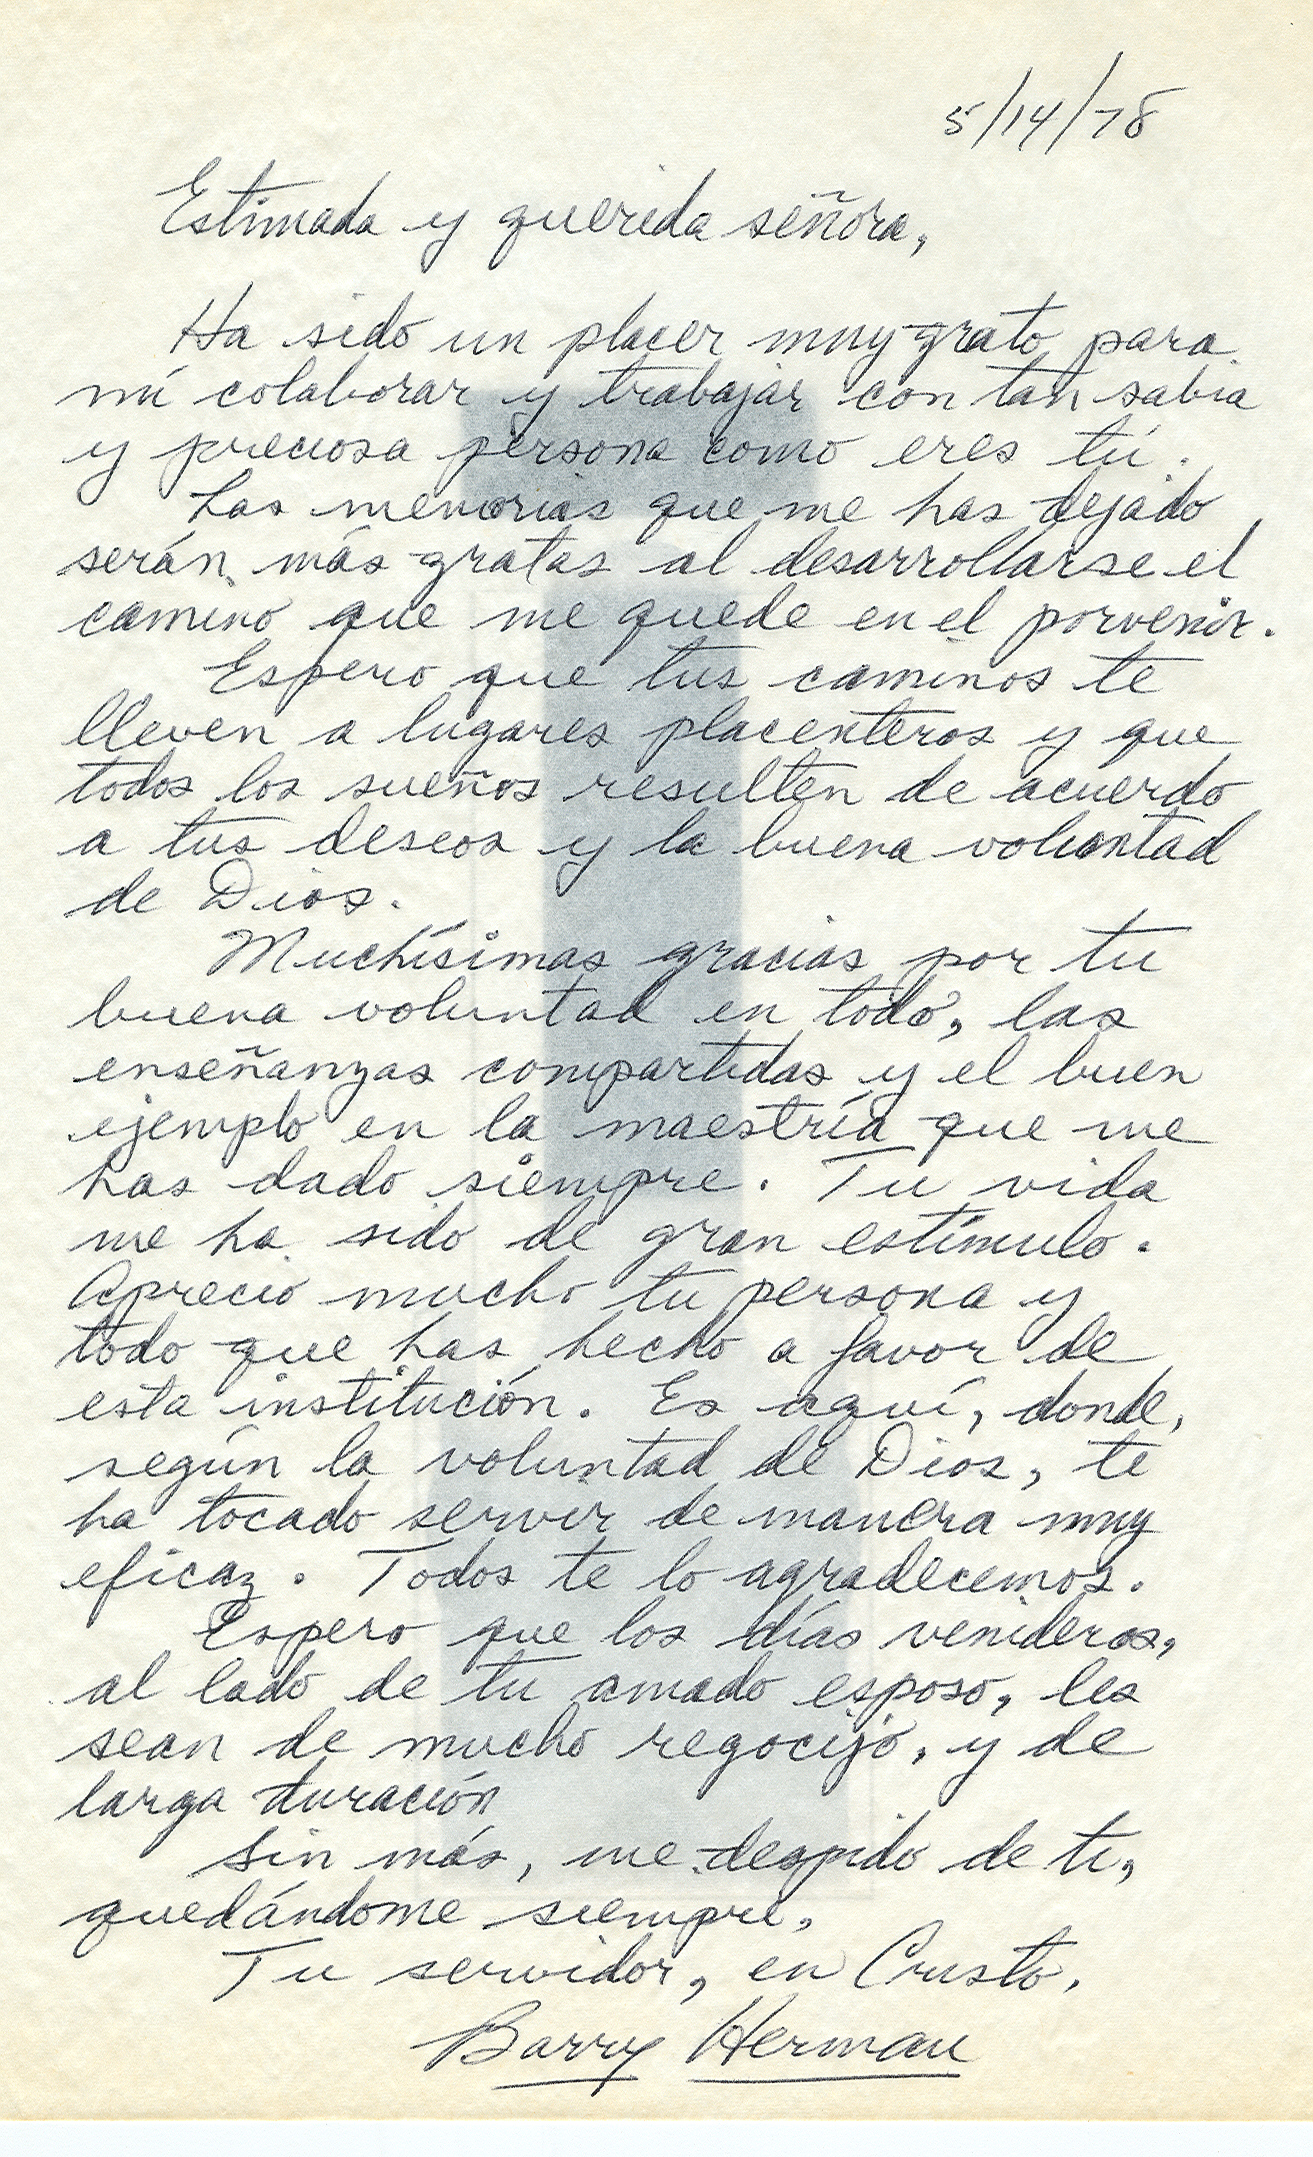 5/14/78
Estimada y querida señora,
Ha sido un placer muy grato para
mí colaborar y trabajar con tan sabia
y preciosa persona como eres tú.
Las memorias que me has dejado
serán más gratas al desarrollarse el
camino que me quede en el porvenir.
Espero que tus caminos te
lleven a lugares placenteros y que
todos los sueños resulten de acuerdo
a tus deseos y la buena voluntad
de Dios.
Muchísimas gracias por tu
buena voluntad en todo, las
enseñanzas compartidas y el buen
ejemplo en la maestría que me
has dado siempre. Tu vida
me ha sido de gran estímulo.
Aprecio mucho tu persona y
todo que has hecho a favor de
esta institución. Es aquí, donde,
según la voluntad de Dios, te
ha tocado servir de manera muy
eficaz. Todos te lo agradecemos.
Espero que los días venideros,
al lado de tu amado esposo, les
sean de mucho regocijo, y de
larga duración
Sin más, me despido de ti,
quedándome siempre,
Tu servidor, en Cristo,
Barry Herman